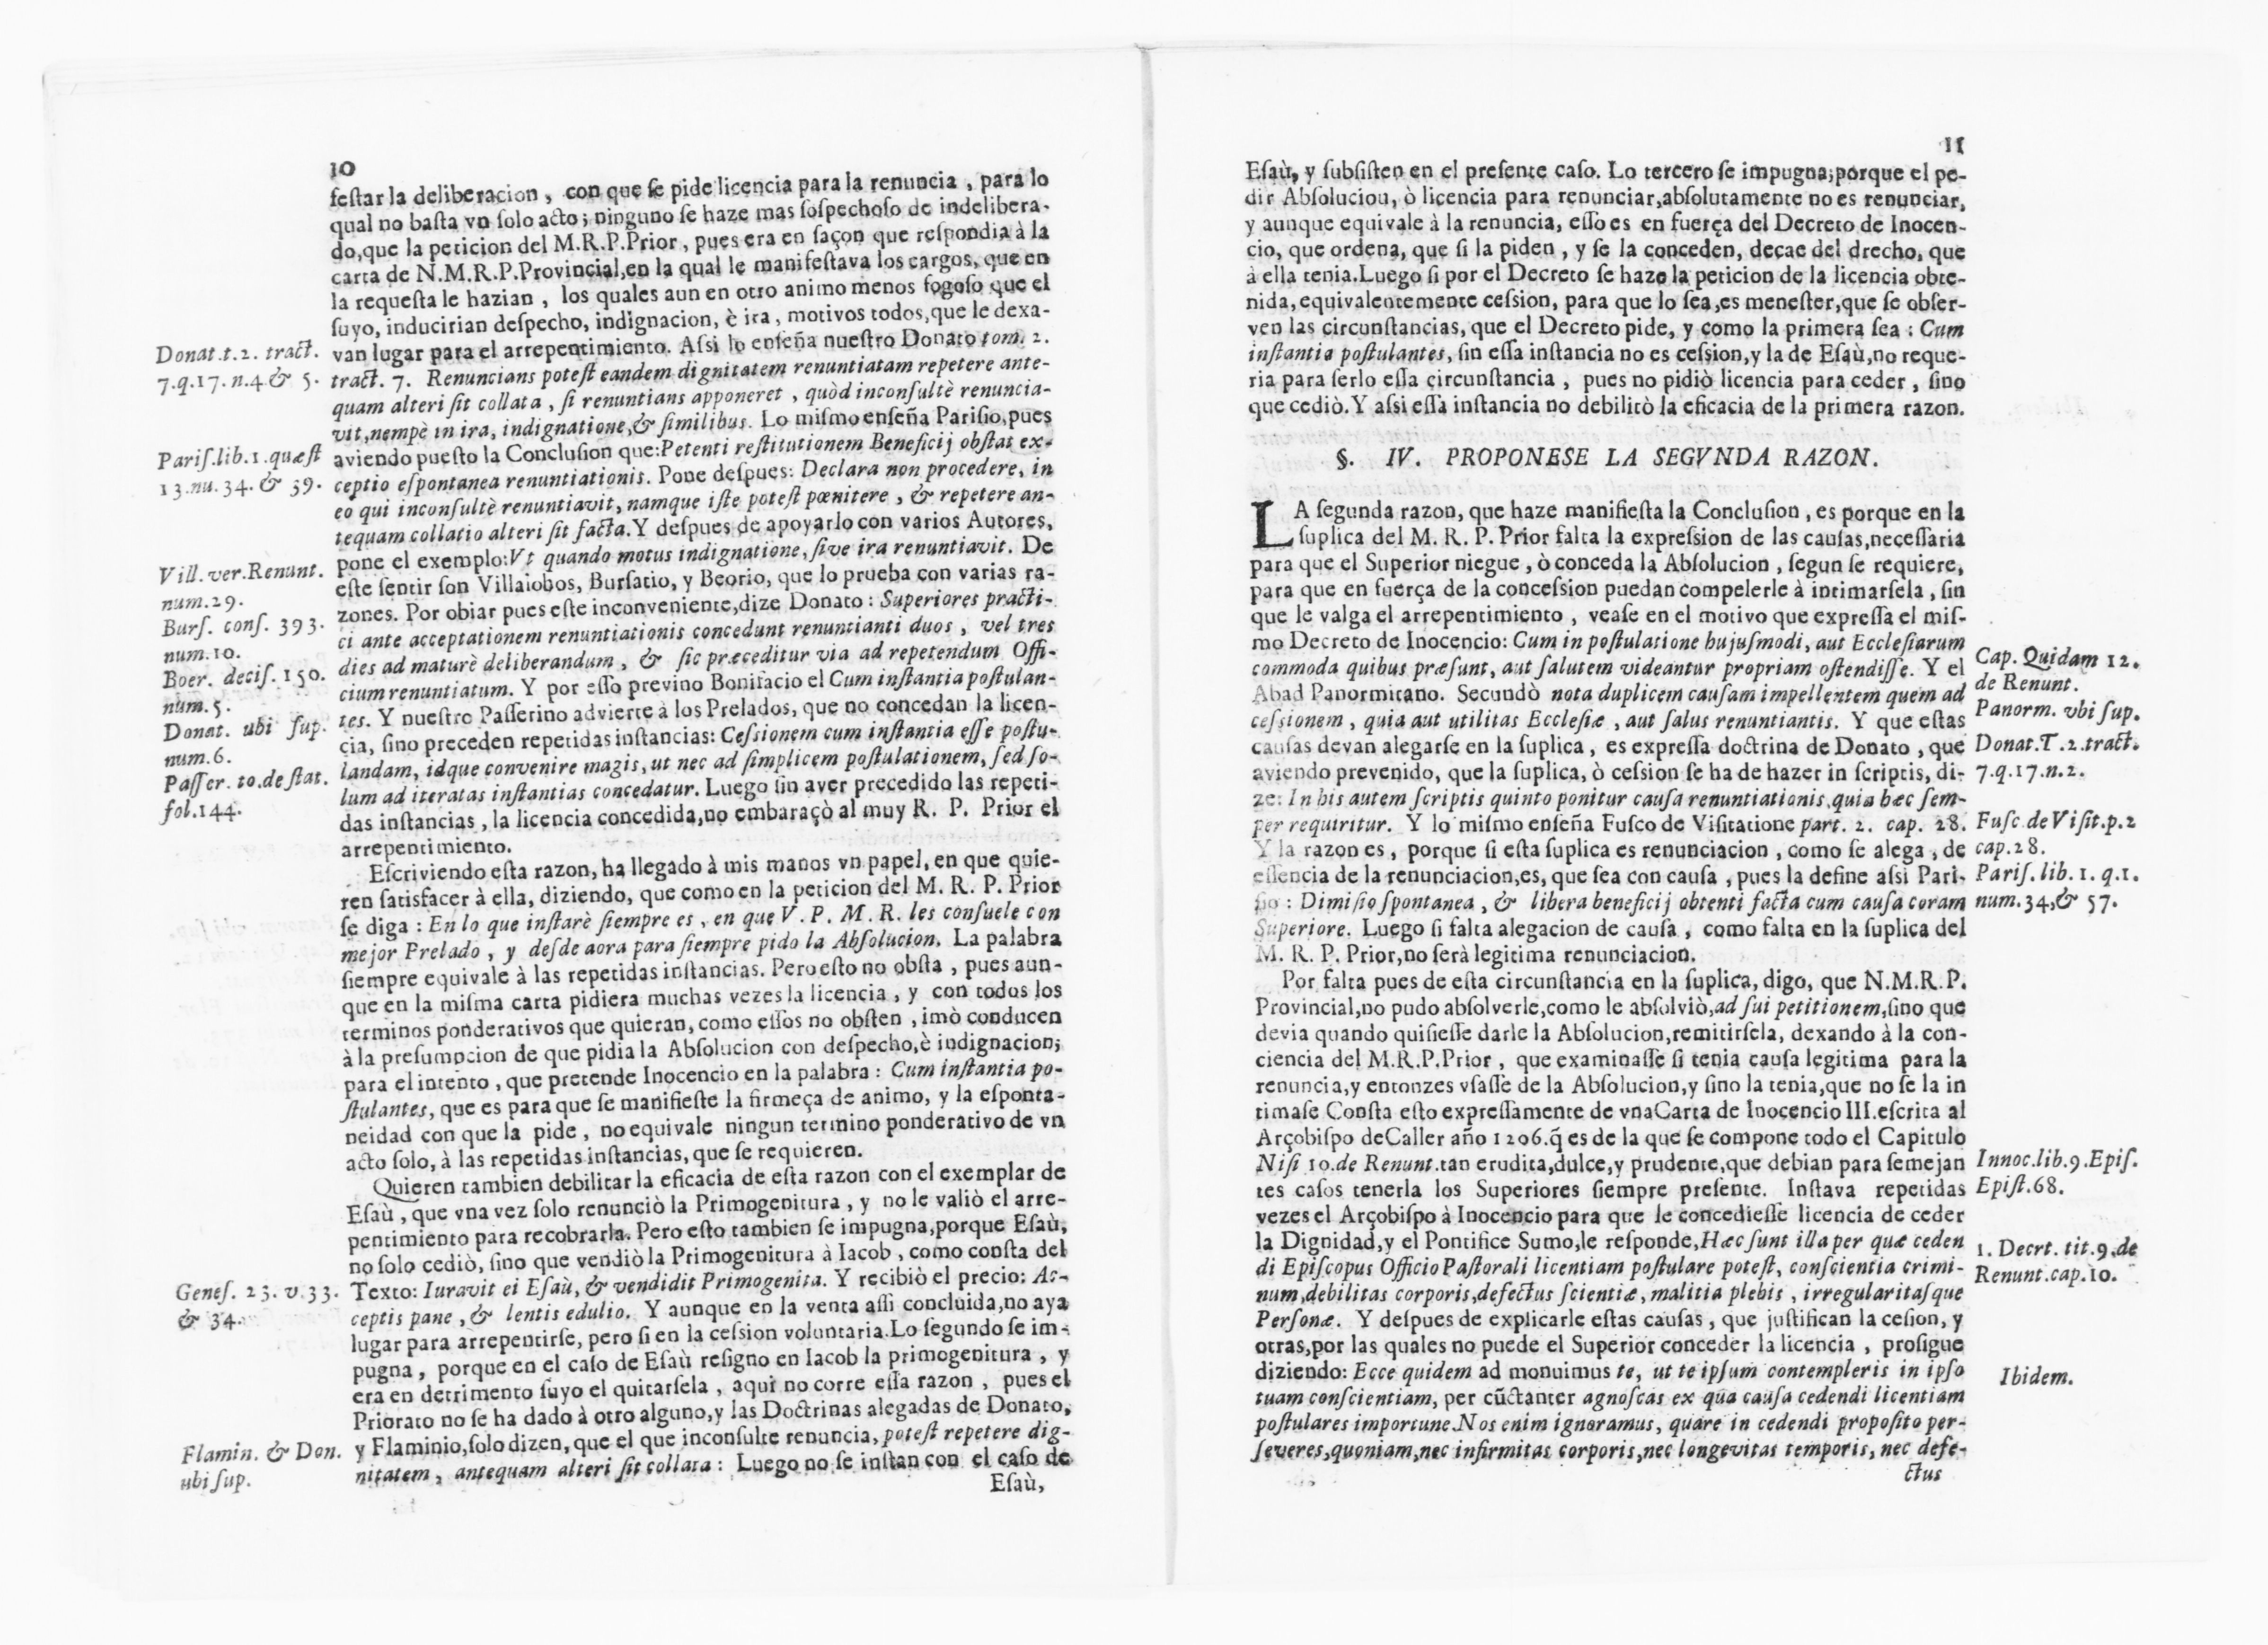 10
feſtar la deliberacion, con que ſe pide licencia para la renuncia, para lo
qual no baſta vn ſolo acto; ninguno ſe haze mas ſoſpechoſo de indelibera-
do, que la peticion del M.R.P.Prior, pues era en façon que reſpondia à la
carta de N.M.R.P.Provincial, en la qual le manifeſtava los cargos, que en
la requeſta le hazian, los quales aun en otro animo menos fogoſo que el
ſuyo, inducirian deſpecho, indignacion, è ira, motivos todos, que le dexa-
van lugar para el arrepentimiento. Aſsi lo enſeña nueſtro Donato tom. 2.
tract. 7. Renuncians poteſt eandem dignitatem renuntiatam repetere ante-
quam alteri ſit collata, ſi renuntians apponeret, quòd inconſultè renuncia-
vit, nempè in ira, indignatione, & ſimilibus. Lo miſmo enſeña Pariſio, pues
aviendo pueſto la Concluſion que: Petenti reſtitutionem Beneficij obſtat ex-
ceptio eſpontanea renuntiationis. Pone deſpues: Declara non procedere, in
eo qui inconſultè renuntiavit, namque iſte poteſt pœnitere, & repetere an-
tequam collatio alteri ſit facta. Y deſpues de apoyarlo con varios Autores,
pone el exemplo: Vt quando motus indignatione, ſive ira renuntiavit. De
eſte ſentir ſon Villalobos, Burſatio, y Beorio, que lo prueba con varias ra-
zones. Por obiar pues eſte inconveniente, dize Donato: Superiores practi-
ci ante acceptationem renuntiationis concedunt renuntianti duos, vel tres
dies ad maturè deliberandum, & ſic præceditur via ad repetendum Offi-
cium renuntiatum. Y por eſſo previno Bonifacio el Cum inſtantia poſtulan-
tes. Y nueſtro Paſſerino advierte à los Prelados, que no concedan la licen-
cia, ſino preceden repetidas inſtancias: Ceſsionem cum inſtantia eſſe poſtu-
landam, idque convenire magis, ut nec ad ſimplicem poſtulationem, ſed ſo-
lum ad iteratas inſtantias concedatur. Luego ſin aver precedido las repeti-
das inſtancias, la licencia concedida, no embaraçò al muy R. P. Prior el
arrepentimiento.
Eſcriviendo eſta razon, ha llegado à mis manos vn papel, en que quie-
ren ſatisfacer à ella, diziendo, que como en la peticion del M. R. P. Prior
ſe diga: En lo que inſtarè ſiempre es, en que V. P. M. R. les conſuele con
mejor Prelado, y deſde aora para ſiempre pido la Abſolucion. La palabra
ſiempre equivale à las repetidas inſtancias. Pero eſto no obſta, pues aun-
que en la miſma carta pidiera muchas vezes la licencia, y con todos los
terminos ponderativos que quieran, como eſſos no obſten, imò conducen
à la preſumpcion de que pidia la Abſolucion con deſpecho, è indignacion;
para el intento, que pretende Inocencio en la palabra: Cum inſtantia po-
ſtulantes, que es para que ſe manifieſte la firmeça de animo, y la eſponta-
neidad con que la pide, no equivale ningun termino ponderativo de vn
acto ſolo, à las repetidas inſtancias, que ſe requieren.
Quieren tambien debilitar la eficacia de eſta razon con el exemplar de
Eſaù, que vna vez ſolo renunciò la Primogenitura, y no le valiò el arre-
pentimiento para recobrarla. Pero eſto tambien ſe impugna, porque Eſaù,
no ſolo cediò, ſino que vendiò la Primogenitura à Iacob, como conſta del
Texto: Iuravit ei Eſaù, & vendidit Primogenita. Y recibiò el precio: Ac-
ceptis pane, & lentis edulio. Y aunque en la venta aſſi concluida, no aya
lugar para arrepentirſe, pero ſi en la ceſsion voluntaria. Lo ſegundo ſe im-
pugna, porque en el caſo de Eſaù reſigno en Iacob la primogenitura, y
era en detrimento ſuyo el quitarſela, aqui no corre eſſa razon, pues el
Priorato no ſe ha dado à otro alguno, y las Doctrinas alegadas de Donato,
y Flaminio, ſolo dizen, que el que inconſulte renuncia, poteſt repetere dig-
nitatem, antequam alteri ſit collata: Luego no ſe inſtan con el caſo de
Eſaù,
Donat.t.2. tract.
7.q.17.n.4 & 5.
Pariſ.lib.1.quæſt
13.nu.34. & 39.
Vill.ver.Renunt.
num.29.
Burſ. conſ. 393.
num.10.
Boer. deciſ. 150.
num.5.
Donat. ubi ſup.
num.6.
Paſſer. to.de ſtat.
fol.144.
Geneſ. 23. v.33.
& 34.
Flamin. & Don.
ubi ſup.
11
Eſaù, y ſubſiſten en el preſente caſo. Lo tercero ſe impugna; porque el pe-
dir Abſolucion, ò licencia para renunciar, abſolutamente no es renunciar,
y aunque equivale à la renuncia, eſſo es en fuerça del Decreto de Inocen-
cio, que ordena, que ſi la piden, y ſe la conceden, decae del drecho, que
à ella tenia. Luego ſi por el Decreto ſe haze la peticion de la licencia obte-
nida, equivalentemente ceſsion, para que lo ſea, es meneſter, que ſe obſer-
ven las circunſtancias, que el Decreto pide, y como la primera ſea: Cum
inſtantia poſtulantes, ſin eſſa inſtancia no es ceſsion, y la de Eſaù, no reque-
ria para ſerlo eſſa circunſtancia, pues no pidiò licencia para ceder, ſino
que cediò. Y aſsi eſſa inſtancia no debilitò la eficacia de la primera razon.
§. IV. PROPONESE LA SEGVNDA RAZON.
LA ſegunda razon, que haze manifieſta la Concluſion, es porque en la
ſuplica del M. R. P. Prior falta la expreſsion de las cauſas, neceſſaria
para que el Superior niegue, ò conceda la Abſolucion, ſegun ſe requiere,
para que en fuerça de la conceſsion puedan compelerle à intimarſela, ſin
que le valga el arrepentimiento, veaſe en el motivo que expreſſa el miſ-
mo Decreto de Inocencio: Cum in poſtulatione hujuſmodi, aut Eccleſiarum
commoda quibus præſunt, aut ſalutem videantur propriam oſtendiſſe. Y el
Abad Panormitano. Secundò nota duplicem cauſam impellentem quem ad
ceſsionem, quia aut utilitas Eccleſiæ, aut ſalus renuntiantis. Y que eſtas
cauſas devan alegarſe en la ſuplica, es expreſſa doctrina de Donato, que
aviendo prevenido, que la ſuplica, ò ceſsion ſe ha de hazer in ſcriptis, di-
ze: In his autem ſcriptis quinto ponitur cauſa renuntiationis, quia hæc ſem-
per requiritur. Y lo miſmo enſeña Fuſco de Viſitatione part. 2. cap. 28.
Y la razon es, porque ſi eſta ſuplica es renunciacion, como ſe alega, de
eſſencia de la renunciacion, es, que ſea con cauſa, pues la define aſsi Pari-
ſio: Dimiſio ſpontanea, & libera beneficij obtenti facta cum cauſa coram
Superiore. Luego ſi falta alegacion de cauſa, como falta en la ſuplica del
M. R. P. Prior, no ſerà legitima renunciacion.
Por falta pues de eſta circunſtancia en la ſuplica, digo, que N.M.R.P.
Provincial, no pudo abſolverle, como le abſolviò, ad ſui petitionem, ſino que
devia quando quiſieſſe darle la Abſolucion, remitirſela, dexando à la con-
ciencia del M.R.P.Prior, que examinaſſe ſi tenia cauſa legitima para la
renuncia, y entonzes vſaſſe de la Abſolucion, y ſino la tenia, que no ſe la in
timaſe Conſta eſto expreſſamente de vna Carta de Inocencio III. eſcrita al
Arçobiſpo de Caller año 1206. q̃ es de la que ſe compone todo el Capitulo
Niſi 10. de Renunt. tan erudita, dulce, y prudente, que debian para ſemejan
tes caſos tenerla los Superiores ſiempre preſente. Inſtava repetidas
vezes el Arçobiſpo à Inocencio para que le concedieſſe licencia de ceder
la Dignidad, y el Pontifice Sumo, le reſponde, Hæc ſunt illa per quæ ceden
di Epiſcopus Officio Paſtorali licentiam poſtulare poteſt, conſcientia crimi-
num, debilitas corporis, defectus ſcientiæ, malitia plebis, irregularitaſque
Perſonæ. Y deſpues de explicarle eſtas cauſas, que juſtifican la ceſion, y
otras, por las quales no puede el Superior conceder la licencia, proſigue
diziendo: Ecce quidem ad monuimus te, ut te ipſum contempleris in ipſo
tuam conſcientiam, per cũctanter agnoſcas ex qua cauſa cedendi licentiam
poſtulares importune. Nos enim ignoramus, quare in cedendi propoſito per-
ſeveres, quoniam, nec infirmitas corporis, nec longevitas temporis, nec defe-
ctus
Cap. Quidam 12.
de Renunt.
Panorm. vbi ſup.
Donat.T.2.tract.
7.q.17.n.2.
Fuſc.de Viſit.p.2
cap.28.
Pariſ. lib. 1. q.1.
num.34,& 57.
Innoc.lib.9.Epiſ.
Epiſt.68.
1. Decrt. tit.9.de
Renunt.cap.10.
Ibidem.